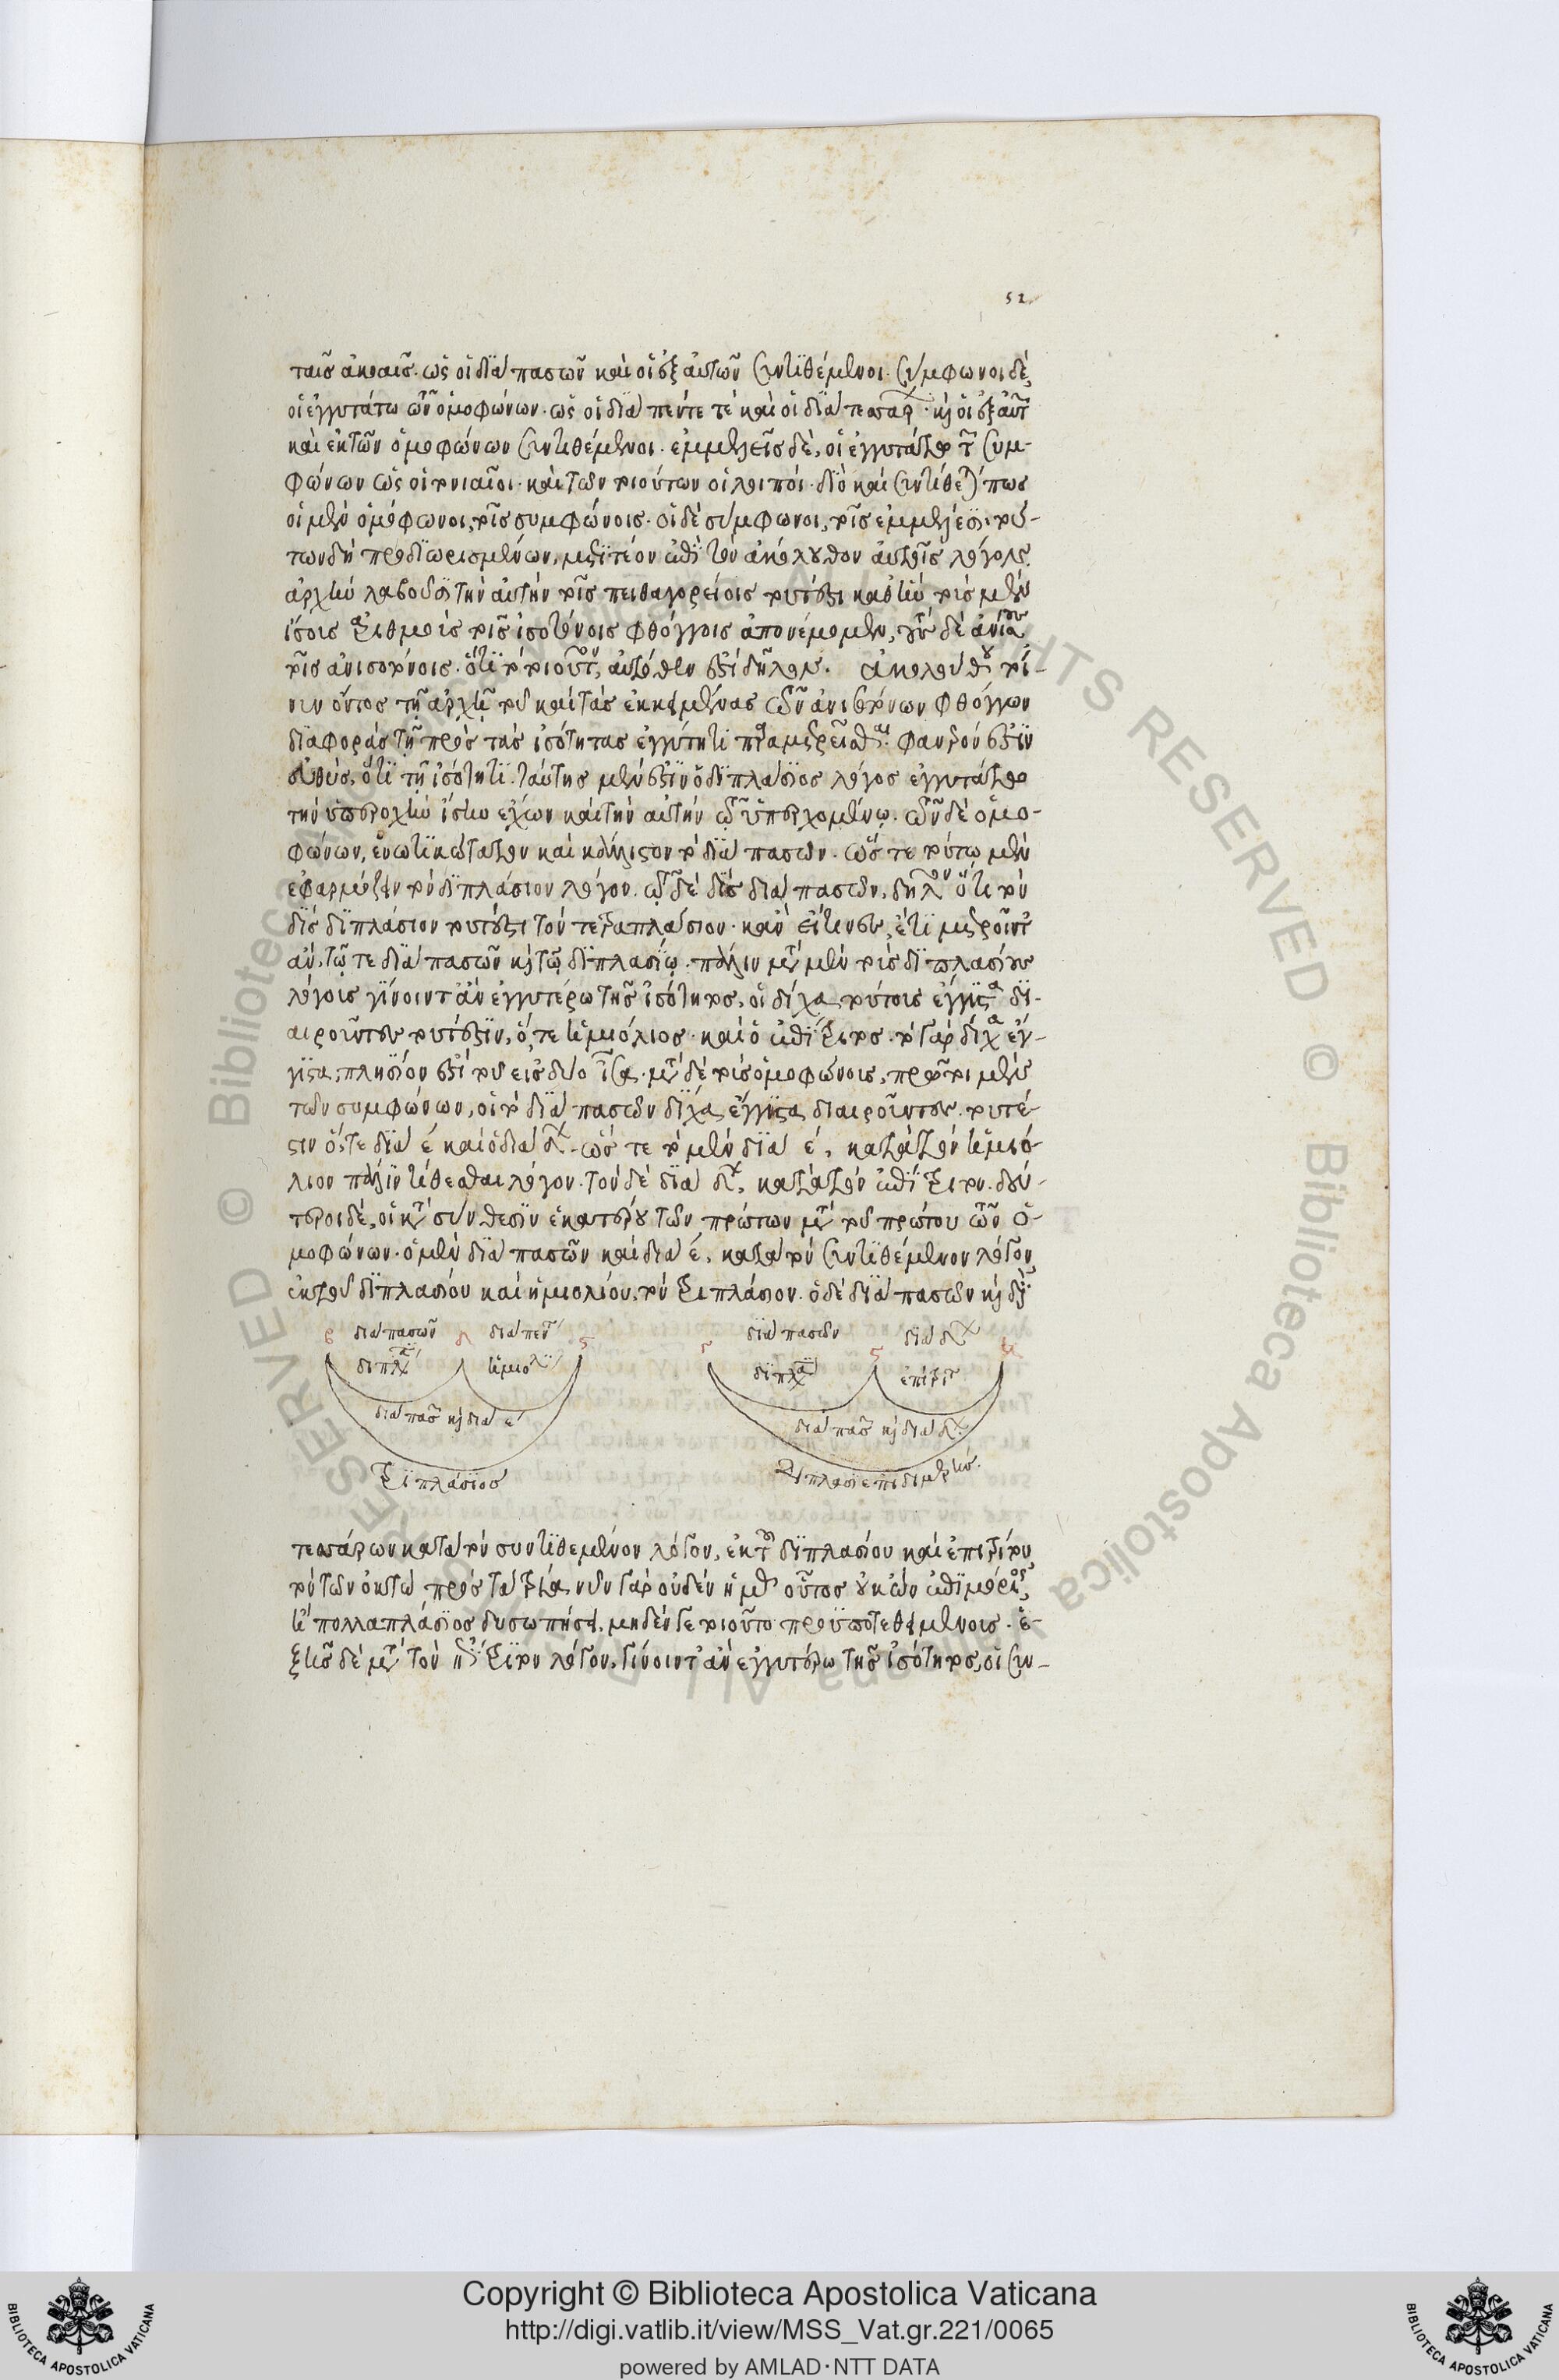 52
ταῖς ἀκοαῖς. ὡς οἱ διὰ πασῶν καὶ οἱ ἐξ αὐτῶν συντιθέμενοι. σύμφωνοι δὲ,
οἱ ἐγγυτάτω τῶν ὁμοφώνων. ὡς οἱ διὰ πέντε τὲ καὶ οἱ διὰ τεσσάρ. κ οἱ ἐξ αὐτ
καὶ ἐκ τῶν ὁμοφώνων συντιθέμενοι. ἐμμελεῖς δὲ, οἱ ἐγγυτάτω τ συμ-
φώνων ὡς οἱ τονιαῖοι. καὶ τῶν τοιούτων οἱ λοιποί. διὸ καὶ συντίθετ πως
οἱ μὲν ὁμόφωνοι, τοῖς συμφώνοις. οἱ δὲ σύμφωνοι, τοῖς ἐμμελέσι. τού-
των δὴ προδιωρισμένων, μετιτέον ἐπὶ τὸν ἀκόλουθον αὐτοῖς λόγον.
ἀρχὴν λαβοῦσι τὴν αὐτὴν τοῖς πειθαγορείοις τουτέστι καθ' ἣν τοὺς μὲν
ἴσους ἀριθμοὺς τοῖς ἰσοτόνοις φθόγγοις ἀπονέμομεν, τοὺς δὲ ἀνίσους
τοῖς ἀνισοτόνοις. ὅτι τὸ τοιοῦτον, αὐτόθεν ἐστὶ δῆλον. ἀκολούθου τοί-
νυν ὄντος τῇ ἀρχῇ τοῦ καὶ τὰς ἐκκειμένας τῶν ἀνισοτόνων φθόγγων
διαφορὰς τῇ πρὸς τὰς ἰσότητας ἐγγύτητι παραμετρεῖσθαι. φανερόν ἐστιν
εὐθὺς, ὅτι τῇ ἰσότητι. ταύτης μέν ἐστιν ὁ διπλάσιος λόγος ἐγγυτάτω
τὴν ὑπεροχὴν ἴσην ἔχων καὶ τὴν αὐτὴν τῷ ὑπερχομένῳ. τῶν δὲ ὁμο-
φώνων, ἑνωτικώτατον καὶ κάλλιστον τὸ διὰ πασῶν. ὥς τε τούτῳ μὲν
ἐφαρμόζειν τὸν διπλάσιον λόγον. τῷ δὲ δὶς διὰ πασῶν, δηλον ὅτι τὸν
δὶς διπλάσιον τουτέστι τὸν τετραπλάσιον. κἂν εἴ τινες, ἔτι μετροῖντο
ἂν, τῷ τε διὰ πασῶν κ τῷ διπλασίῳ. πάλιν μετ μὲν τοὺς διπλασίους
λόγους γίνοιντ ἂν ἐγγυτέρω τῆς ἰσότητος, οἱ δίχα τούτους ἔγγιστα δι-
αιροῦντες τουτέστιν, ὅ, τε ἡμιόλιος. καὶ ὁ ἐπίτριτος. τὸ γὰρ δίχα ἔγ-
γιστα, πλησίον ἐστὶ τοῦ εἰς δύο ἴσα. μετ δὲ τοὺς ὁμοφώνους, πρῶτοι μὲν
τῶν συμφώνων, οἱ τὸ διὰ πασῶν δίχα ἔγγιστα διαιροῦντες. τουτέ-
στιν ὅ, τε διὰ έ καὶ ὁ διὰ δ. ὥς τε τὸ μὲν διὰ έ, κατὰ τὸν ἡμιό-
λιον πάλιν τίθεσθαι λόγον. τὸν δὲ διὰ δ, κατὰ τὸν ἐπίτριτον. δεύ-
τεροι δὲ, οἱ κατ σύνθεσιν ἑκατέρου τῶν πρώτων μετ τοῦ πρώτου τῶν ὁ-
μοφώνων. ὁ μὲν διὰ πασῶν καὶ διὰ έ, κατὰ τὸν συντιθέμενον λόγον
ἐκ τοῦ διπλασίου καὶ ἡμιολίου, τὸν τριπλάσιον. ὁ δὲ διὰ πασῶν κ διὰ
β διὰ πασῶν δ διὰ πεντ ς γ διὰ πασῶν ς διὰ δ η
διπλα ἡμιολι διπλα ἐπίτριτ
διὰ πασ κ διὰ έ διὰ πασ κ διὰ δ
τριπλάσιος διπλασιεπιδιμερής
τεσσάρων κατὰ τὸν συντιθεμένον λόγον, ἐκ τοῦ διπλασίου καὶ ἐπιτρίτου
τὸν τῶν ὀκτὼ πρὸς τὰ τρία. νῦν γὰρ οὐδὲν ἡμᾶς οὗτος οὐκ ὢν ἐπιμόριος
ἢ πολλαπλάσιος δυσωπήσει, μηδέν γε τοιοῦτο προϋποτεθειμένους. ἑ-
ξῆς δὲ μετ τὸν ἐπίτριτον λόγον, γίνοιντ ἂν ἐγγυτέρω τῆς ἰσότητος, οἱ συν-
Copyright © Biblioteca Apostolica Vaticana
http://digi.vatlib.it/view/MSS_Vat.gr.221/0065
powered by AMLAD·NTT DATA
BIBLIOTECA APOSTOLICA VATICANA
BIBLIOTECA APOSTOLICA VATICANA